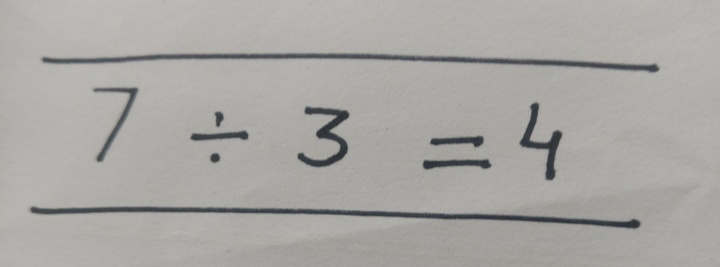 7 ÷ 3 = 4